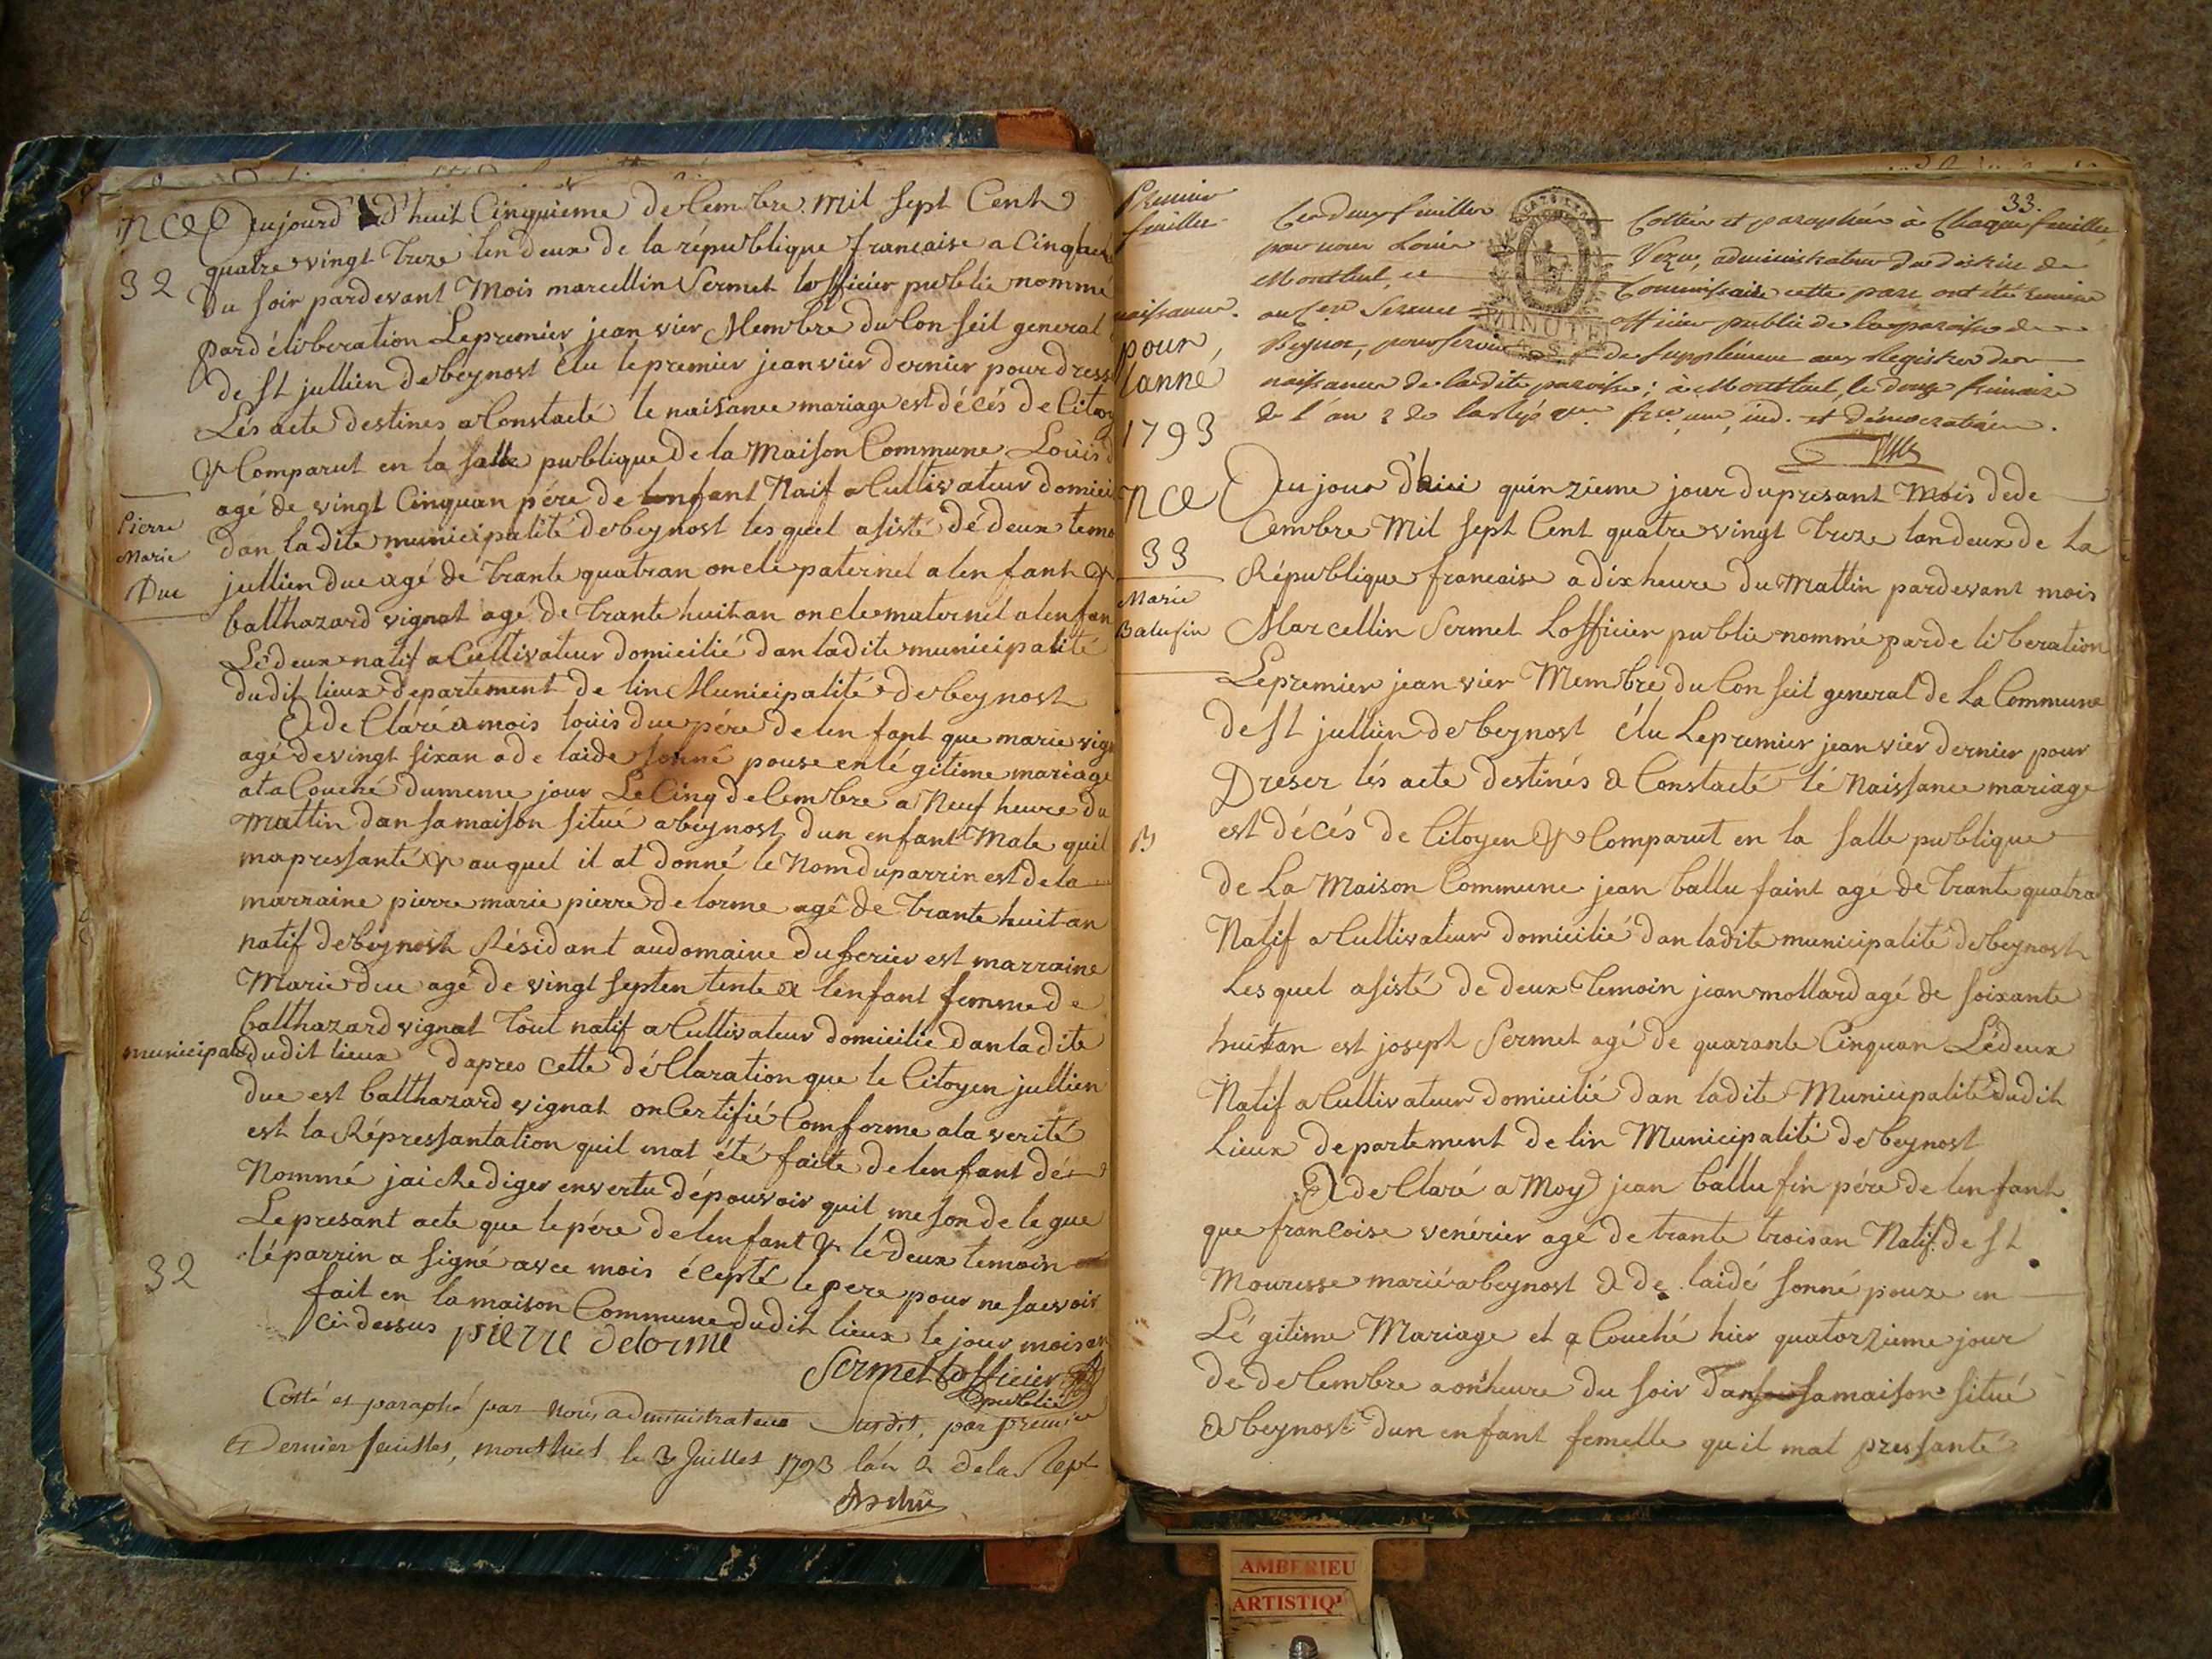 nce
32
Pierre
Marie
Duc
Aujourd d'huit Cinquieme decembre mil sept Cent
quatre vingt treze len deux de la république francaise a Cinq heur
du soir pardevant Mois marcellin Sermet lofficier public nommé
pardéliberation Lepremier jeanvier Membre du Conseil general
de st jullien debeynost élu lepremier jeanvier dernier pour dress
Lés acte destines a Constacté le naisance mariage est décés de Citoy
& Comparut en la salle publique de la Maison Commune Louis d
agé de vingt Cinquan pére de lenfant Naif a Cultivateur domici
dan ladite municipalité debeynost lesquel asisté dé deux temo
jullien duc agé de trante quatran oncle paternel a lenfant &
balthazard vignat agé de trante huitan oncle maternel a lenfan
Lédeux natif a Cultivateur domicilié dan ladite municipalité
dudit lieux departement de lin Municipalité debeynost
A de Claré a mois louis duc pére de lenfant que marie vign
agé de vingt sixan a de laide sonné pouse en lé gitime mariage
at a Couché dumeme jour Le Cinq decembre a Neuf heure du
mattin dan samaison situé abeynost dun enfant Male quil
mapressanté & auquel il at donné le Nom duparrin est dela
marraine pierre marie pierre delorme agé de trante huit an
natif debeynost Résidant audomaine duferier est marraine
Marie duc agé de vingt septen tente a lenfant femme de
balthazard vignat tout natif a Cultivateur domicilie dan ladite
municipalé dudit lieux dapres cette déClaration que le Citoyen jullien
duc est balthazard vignat on Certifié Comforme ala verité
est la Répressantation quil mat été faite de lenfant dé
Nommé jai Rediger envertu dépouvoir quil me son de le gue
Lepresant acte que le pére de lenfant & lé deux temoin
32
lé parrin a signé avec mois écepté le pere pour ne savoir
fait en la maison Commune dudit lieux le jour mois an
ci dessus pierre delorme
Sermet lofficier
public
Cotté et paraphé par nous administrateur Susdit, par premier
et Dernier feuilles, montluel le 3 Juillet 1793 lan 2 dela Rep
33.
Premier
feuillet
naissance.
pour
lanné
1793
Ces deux feuillets Cottés et paraphés à Chaque feuillet
par nous Louis Vezu, administrateur du district de
Montluel, et Commissaire cette part ont été remise
au Cen Sermet officier public de la paroisse de
Beynost, pour servir de supplément aux Registres des
naissances de ladite paroisse; à Montluel, le douze frimaire
de l'an 2 de la Rép que frse une, ind. et démocratique.
nce
33
Marie
Balufin
Aujour d'hui quinzieme jour dupresant Mois dede
Cembre Mil sept Cent quatre vingt treze lan deux de La
République francaise a dix heure du Mattin pardevant mois
Marcellin Sermet Lofficier public nommé parde liberation
Lepremier jeanvier Membre du Conseil general de La Commune
de st jullien debeynost élu Lepremier jeanvier dernier pour
Dreser lés acte destinés a Constacté lé Naissance mariage
est décés de Citoyen & Comparut en la salle publique
de La Maison Commune jean ballu faint agé de trante quatra
Natif a Cultivateur domicilié dan ladite municipalité debeynost
Lesquel asisté de deux temoin jean mollard agé de soixante
huitan est joseph Sermet agé de quarante Cinquan Lédeux
Natif a Cultivateur domicilié dan ladite Municipalité dudit
Lieux departement de lin Municipalité debeynost
A de Claré a Moy jean ballufin pére de lenfant
que francoise venérier agé de trante troisan Natif de st
Mouresse marié abeynost a de laidé sonné pouze en
Lé gitime Mariage et a Couché hier quatorzieme jour
de decembre a onheure du soir dan samaison situé
abeynost dun enfant femelle quil mat pressanté
AMBERIEU
ARTISTIQ